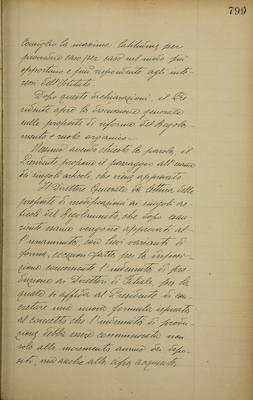 799
Consiglio la massima latitudine per
provvedere caso per caso nel modo più
opportuno e più rispondente agli inte-
ressi dell'Istituto.
Dopo queste dichiarazioni, il Pre-
sidente apre la discussione generale
sulle proposte di riforma del Regola-
mento e ruolo organico.
Nessuno avendo chiesto la parola, il
Presidente propone il passaggio all'esame
dei singoli articoli, che viene approvato.
Il Direttore Generale dà lettura delle
proposte di modificazioni ai singoli ar-
ticoli del Regolamento, che dopo esau-
riente esame vengono approvati al-
l'unanimità, con lievi varianti di
forma, eccezion fatta per la disposi-
zione concernente l'indennità di pro-
duzione ai Direttori di Filiale, per la
quale si affida al Presidente di con-
cretare una nuova formula ispirata
al concetto che l'indennità di produ-
zione debba essere commisurata non
solo all'incremento annuo dei depo-
siti, ma anche alla cifra